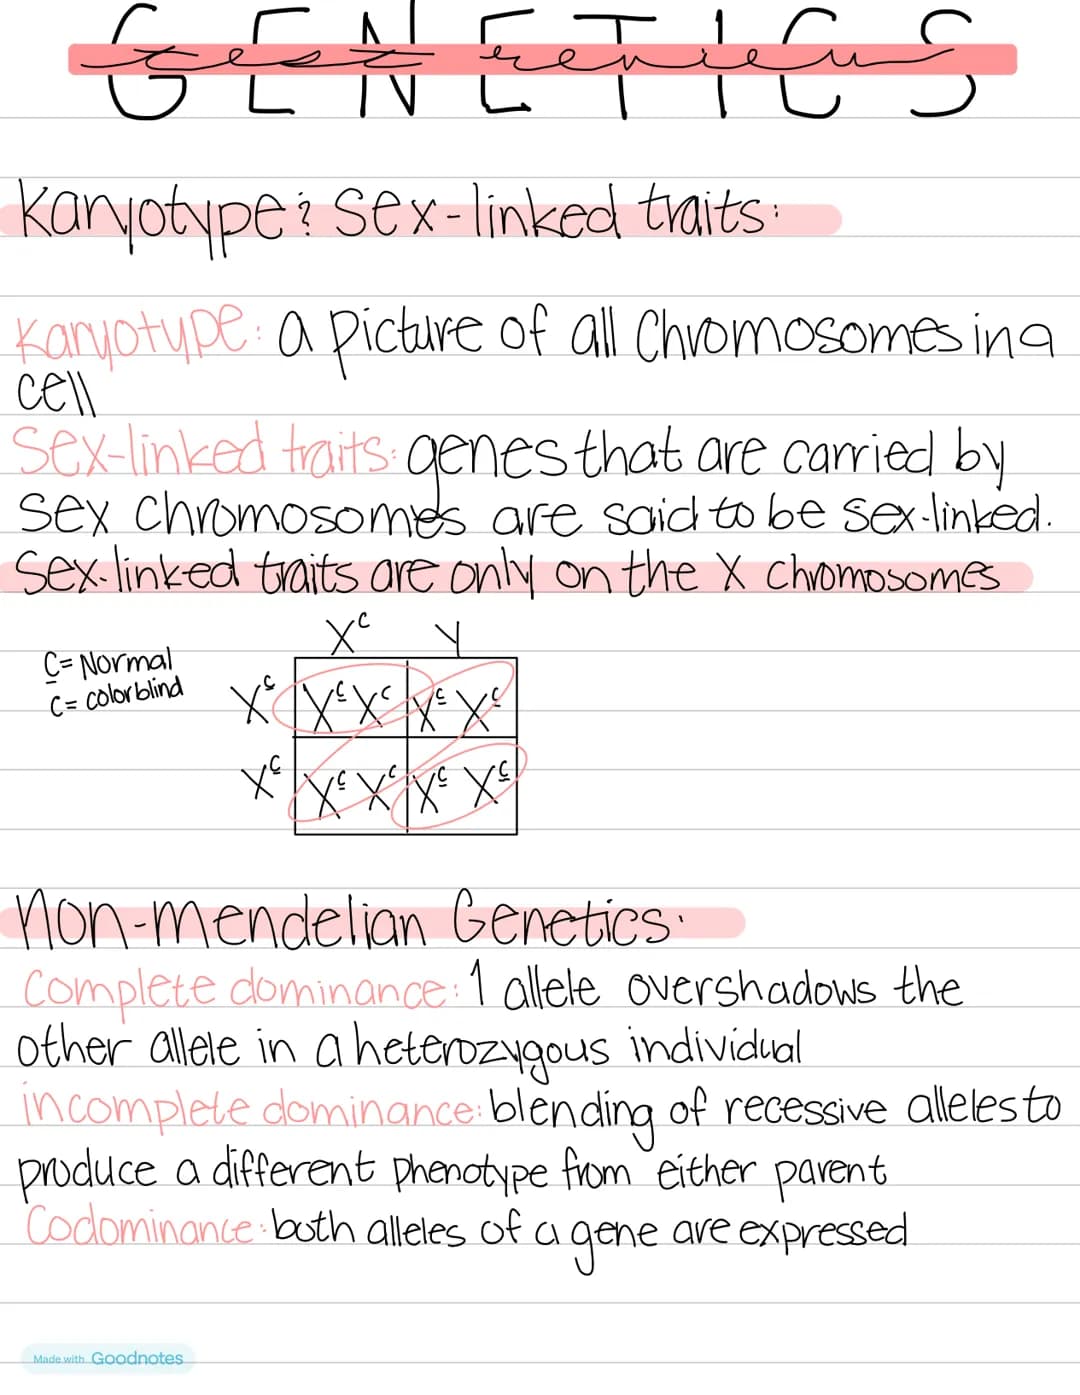 GENETICS
test review
Karyotype & Sex-linked traits:
Karyotype: a picture of all Chromosomes in a
cell
Sex-linked traits: genes that are carried by
sex chromosomes are said to be sex-linked.
Sex-linked traits are only on the X chromosomes
X^c Y
C = Normal
c = colorblind
X^C X^C X^c X^C X^C
X^C X^C X^c X^C X^C
Non-mendelian Genetics:
Complete dominance: 1 allele overshadows the
other allele in a heterozygous individual
incomplete dominance: blending of recessive alleles to
produce a different phenotype from either parent
Codominance: both alleles of a gene are expressed
Made with Goodnotes